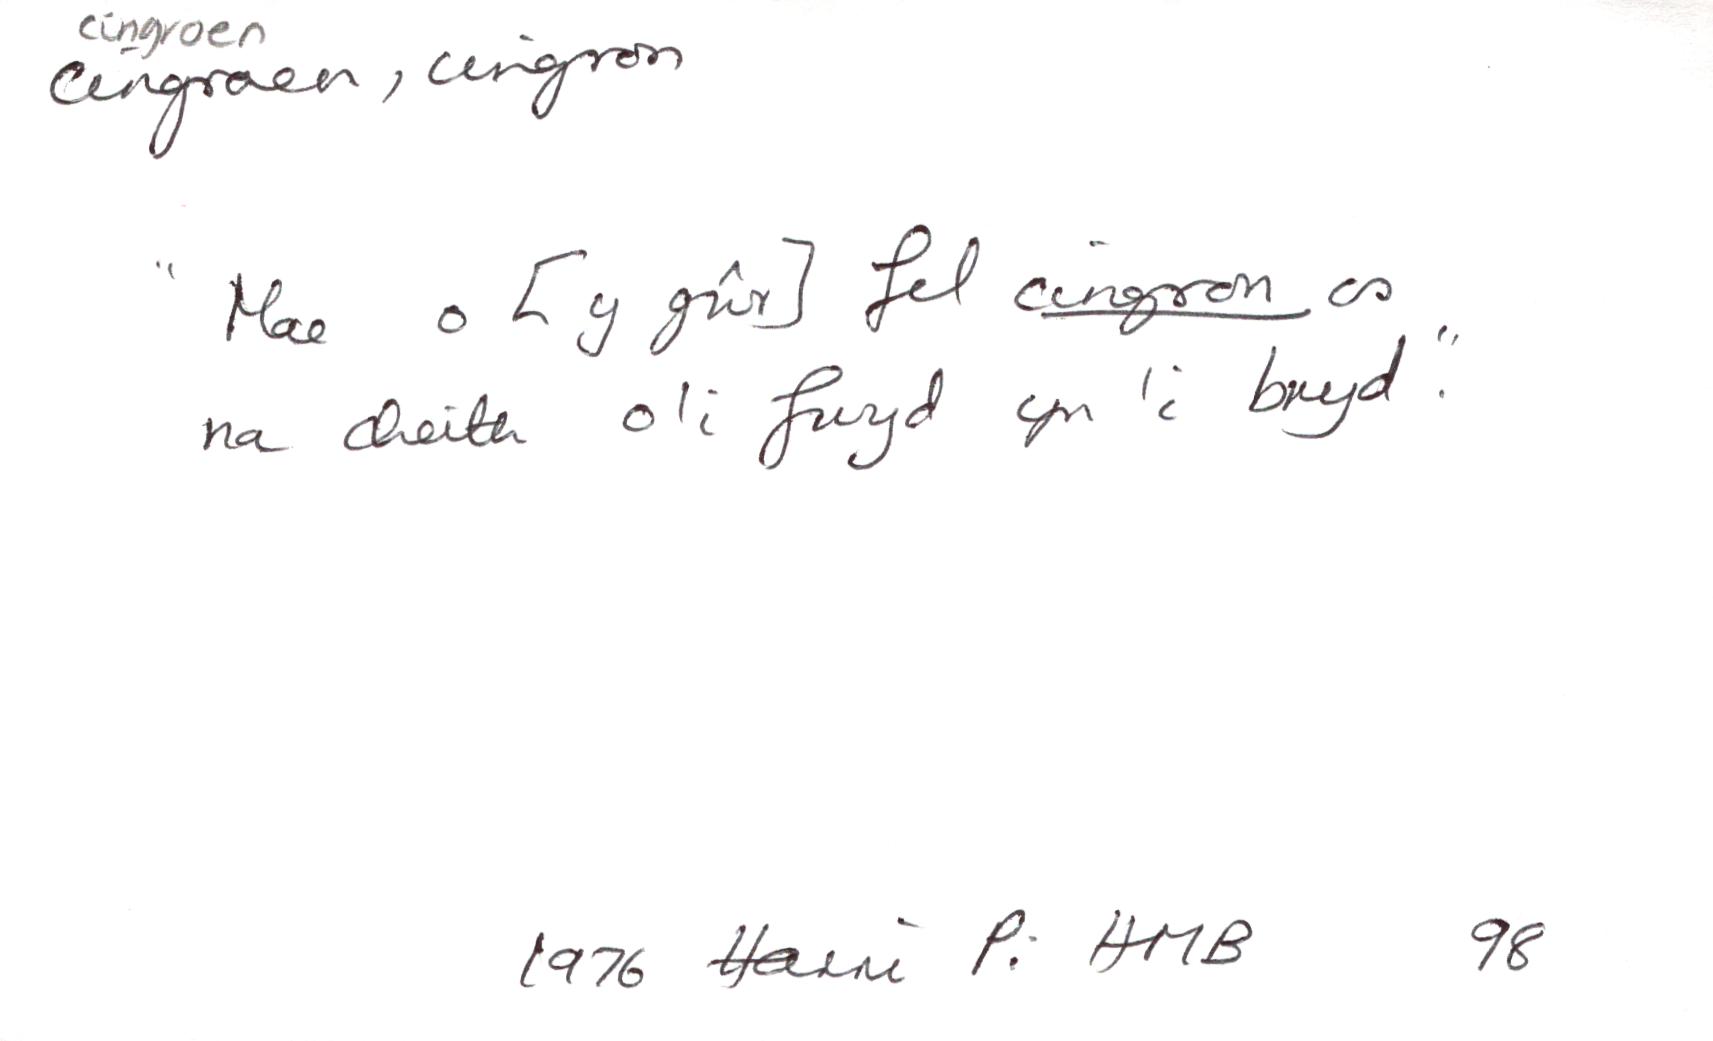 cingroen
Cingroen, cingron
"Mae o [y gŵr] fel cingron os
na cheith o'i fwyd yn 'i bryd."
1976 Harri P: HMB 98